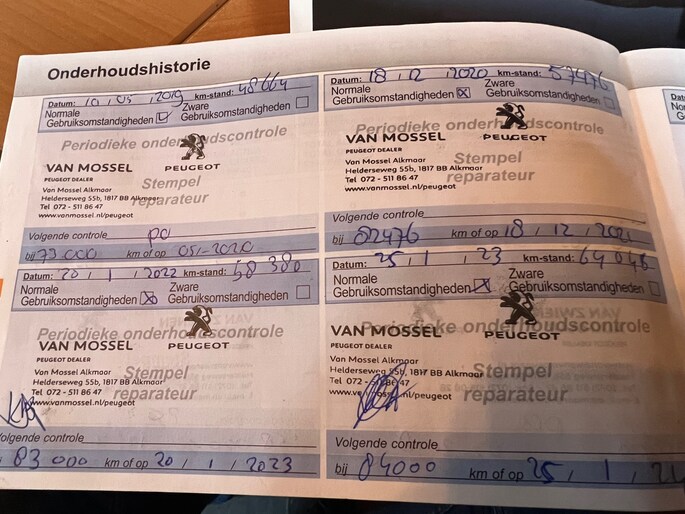 Onderhoudshistorie
Datum: 10 / 05 / 2019 km-stand: 48664
Normale Gebruiksomstandigheden Zware Gebruiksomstandigheden
Periodieke onderhoudscontrole
VAN MOSSEL PEUGEOT
PEUGEOT DEALER
Stempel
Van Mossel Alkmaar
reparateur
Helderseweg 55b, 1817 BB Alkmaar
Tel 072 - 511 86 47
www.vanmossel.nl/peugeot
Volgende controle
bij 73000 km of op 05-2020
Datum: 18 / 12 / 2020 km-stand: 57476
Normale Gebruiksomstandigheden Zware Gebruiksomstandigheden
Periodieke onderhoudscontrole
VAN MOSSEL PEUGEOT
PEUGEOT DEALER
Stempel
Van Mossel Alkmaar
reparateur
Helderseweg 55b, 1817 BB Alkmaar
Tel 072 - 511 86 47
www.vanmossel.nl/peugeot
Volgende controle
bij 82476 km of op 18 / 12 / 2021
Datum: 20 / 1 / 2022 km-stand: 58 380
Normale Gebruiksomstandigheden Zware Gebruiksomstandigheden
Periodieke onderhoudscontrole
VAN MOSSEL PEUGEOT
PEUGEOT DEALER
Stempel
Van Mossel Alkmaar
reparateur
Helderseweg 55b, 1817 BB Alkmaar
Tel 072 - 511 86 47
www.vanmossel.nl/peugeot
Volgende controle
bij 83000 km of op 20 / 1 / 2023
Datum: 25 / 1 / 23 km-stand: 64046
Normale Gebruiksomstandigheden Zware Gebruiksomstandigheden
Periodieke onderhoudscontrole
VAN MOSSEL PEUGEOT
PEUGEOT DEALER
Stempel
Van Mossel Alkmaar
reparateur
Helderseweg 55b, 1817 BB Alkmaar
Tel 072 - 511 86 47
www.vanmossel.nl/peugeot
Volgende controle
bij 84000 km of op 25 / 1 /